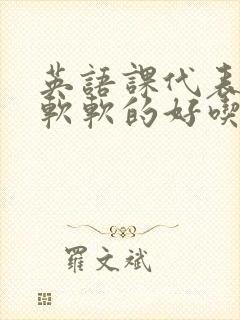 英語課代表
軟軟的好喫
羅文斌